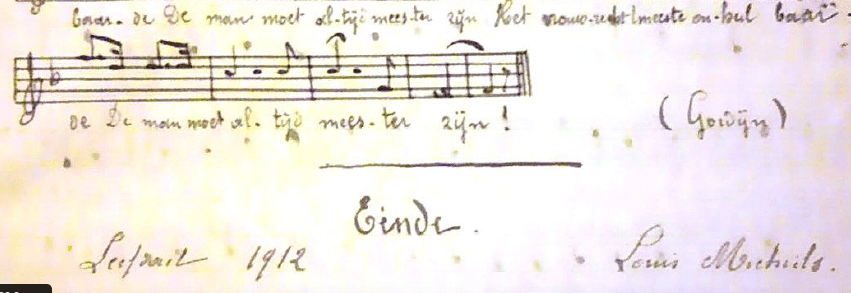 baar-de De man moet al-tijd mees-ter zijn Het meeste on-heil baar-
de De man moet al-tijd mees-ter zijn!
(Gowijn)
Einde.
1912 Louis Michiels.